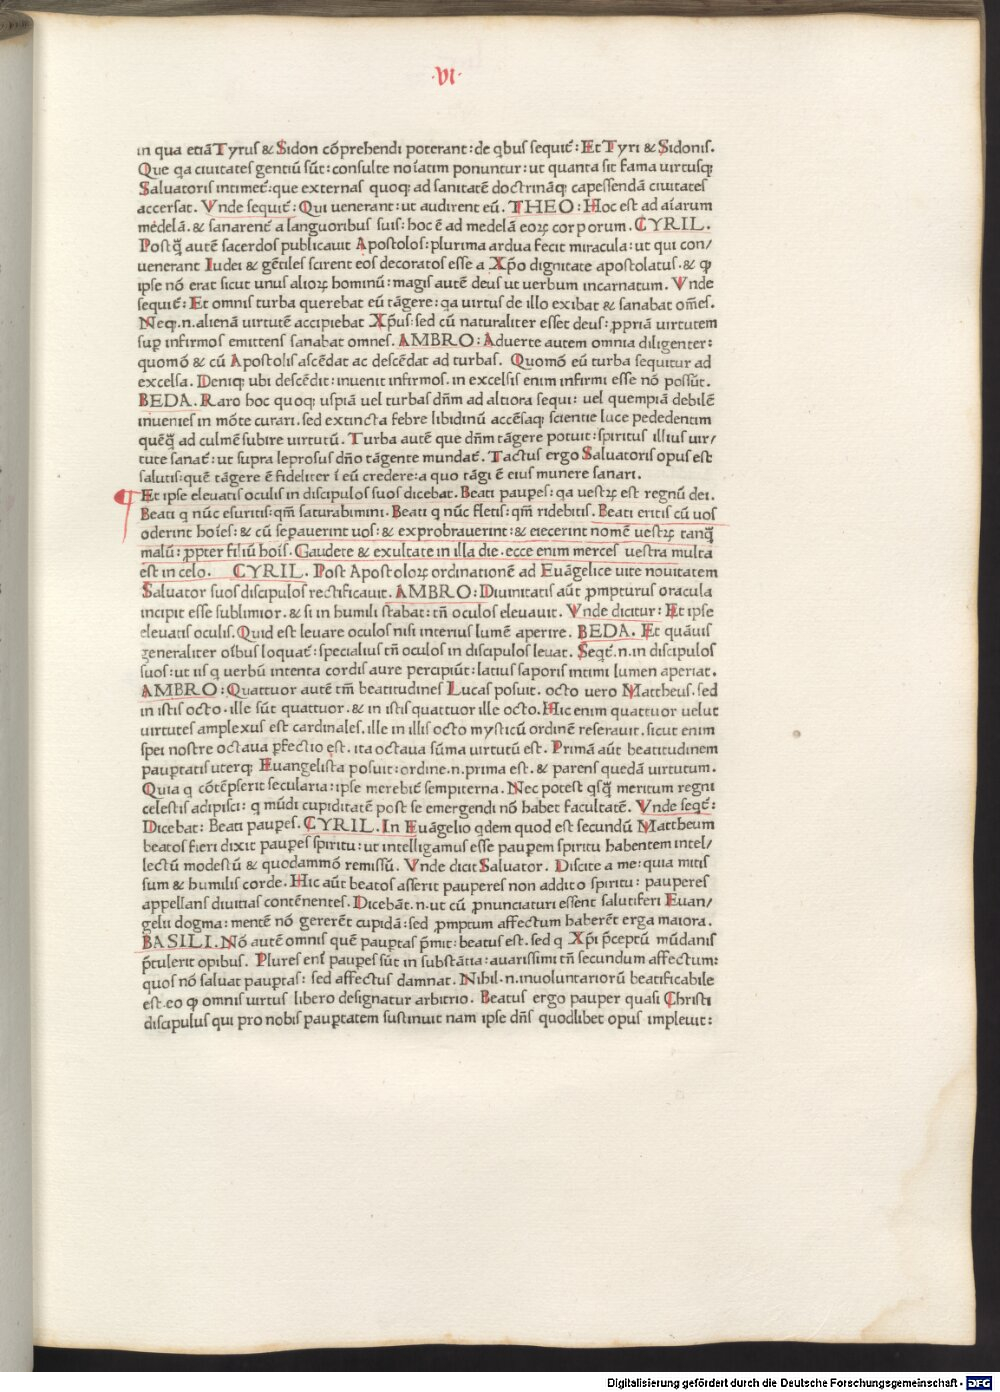 ·VI·
in qua etiā Tyrus & Sidon cōprehendi poterant: de qbus sequit᷑: Et Tyri & Sidonis.
Que qa ciuitates gentiū sūt: consulte noīatim ponuntur: ut quanta sit fama uirtusq;
Saluatoris intimet᷑: que externas quoq; ad sanitatē doctrināq; capessendā ciuitates
accersat. Vnde sequit᷑: Qui uenerant: ut audirent eū. THEO: Hoc est ad aīarum
medelā. & sanarent᷑ a languoribus suis: hoc ē ad medelā eoꝝ corporum. CYRIL.
Postq̄ autē sacerdos publicauit Apostolos: plurima ardua fecit miracula: ut qui con/
uenerant Iudei & gētiles scirent eos decoratos esse a Xp̄o dignitate apostolatus. & ꝙ
ipse nō erat sicut unus alioꝝ hominū: magis autē deus ut uerbum incarnatum. Vnde
sequit᷑: Et omnis turba querebat eū tāgere: qa uirtus de illo exibat & sanabat om̄es.
Neq;.n. alienā uirtutē accipiebat Xp̄us: sed cū naturaliter esset deus: ꝓpriā uirtutem
suꝑ infirmos emittens sanabat omnes. AMBRO: Aduerte autem omnia diligenter:
quomō & cū Apostolis ascēdat ac descēdat ad turbas. Quomō eū turba sequitur ad
excelsa. Deniq; ubi descēdit: inuenit infirmos. in excelsis enim infirmi esse nō possūt.
BEDA. Raro hoc quoq; uspiā uel turbas dn̄m ad altiora sequi: uel quempiā debilē
inuenies in mōte curari. sed extincta febre libidinū accēsaq; scientie luce pededentim
quēq̄ ad culmē subire uirtutū. Turba autē que dn̄m tāgere potuit: spiritus illius uir/
tute sanat᷑: ut supra leprosus dn̄o tāgente mundat᷑. Tactus ergo Saluatoris opus est
salutis: quē tāgere ē fideliter ī eū credere: a quo tāgi ē eius munere sanari.
¶ Et ipse eleuatis oculis in discipulos suos dicebat. Beati pauꝑes: qa uestꝝ est regnū dei.
Beati q nūc esuritis: qm̄ saturabimini. Beati q nūc fletis: qm̄ ridebitis. Beati eritis cū uos
oderint hoīes: & cū seꝑauerint uos: & exprobrauerint: & eiecerint nomē uestꝝ tanq̄
malū: ꝓpter filiū hoīs. Gaudete & exultate in illa die. ecce enim merces uestra multa
est in celo. CYRIL. Post Apostoloꝝ ordinationē ad Euāgelice uite nouitatem
Saluator suos discipulos rectificauit. AMBRO: Diuinitatis aūt ꝓmpturus oracula
incipit esse sublimior. & si in humili stabat: tn̄ oculos eleuauit. Vnde dicitur: Et ipse
eleuatis oculis. Quid est leuare oculos nisi interius lumē aperire. BEDA. Et quāuis
generaliter oībus loquat᷑: specialius tn̄ oculos in discipulos leuat. Seqt᷑.n. in discipulos
suos: ut iis q uerbū intenta cordis aure percipiūt: latius saporis intimi lumen aperiat.
AMBRO: Quattuor autē tm̄ beatitudines Lucas posuit. octo uero Mattheus. sed
in istis octo. ille sūt quattuor. & in istis quattuor ille octo. Hic enim quattuor uelut
uirtutes amplexus est cardinales. ille in illis octo mysticū ordinē reserauit. sicut enim
spei nostre octaua ꝑfectio est. ita octaua sūma uirtutū est. Primā aūt beatitudinem
pauꝑtatis uterq; Euangelista posuit: ordine.n. prima est. & parens quedā uirtutum.
Quia q cōtēpserit secularia: ipse merebit᷑ sempiterna. Nec potest qsq̄ meritum regni
celestis adipisci: q mūdi cupiditatē post se emergendi nō habet facultatē. Vnde seqt᷑:
Dicebat: Beati pauꝑes. CYRIL. In Euāgelio qdem quod est secundū Mattheum
beatos fieri dixit pauꝑes spiritu: ut intelligamus esse pauꝑem spiritu habentem intel/
lectū modestū & quodammō remissū. Vnde dicit Saluator. Discite a me: quia mitis
sum & humilis corde. Hic aūt beatos asserit pauperes non addito spiritu: pauperes
appellans diuitias contēnentes. Dicebāt.n. ut cū ꝓnunciaturi essent salutiferi Euan/
gelii dogma: mentē nō gererēt cupidā: sed ꝓmptum affectum haberēt erga maiora.
BASILI. Nō autē omnis quē pauꝑtas p̄mit: beatus est. sed q Xp̄i p̄ceptū mūdanis
p̄tulerit opibus. Plures enī pauꝑes sūt in substātia: auarissimi tn̄ secundum affectum:
quos nō saluat pauꝑtas: sed affectus damnat. Nihil.n. inuoluntariorū beatificabile
est. eo ꝙ omnis uirtus libero designatur arbitrio. Beatus ergo pauper quasi Christi
discipulus qui pro nobis pauꝑtatem sustinuit nam ipse dn̄s quodlibet opus impleuit:
Digitalisierung gefördert durch die Deutsche Forschungsgemeinschaft - DFG